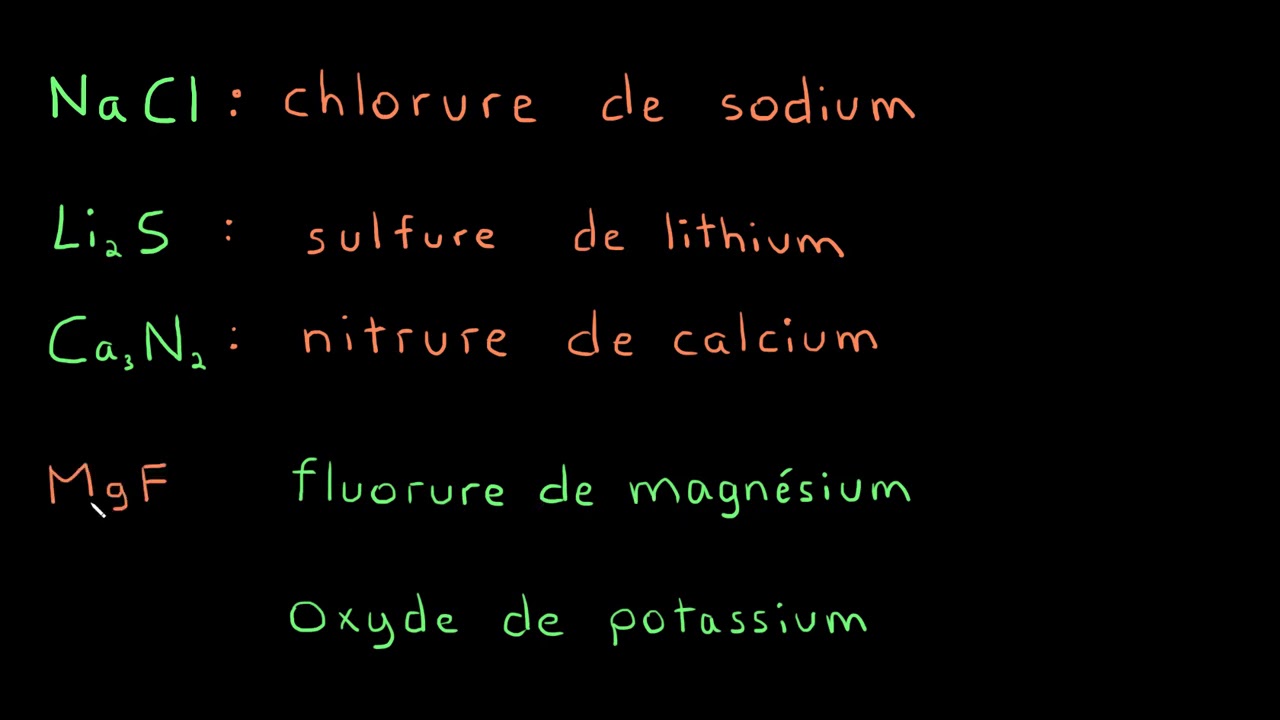 NaCl : chlorure de sodium
Li₂S : sulfure de lithium
Ca₃N₂ : nitrure de calcium
MgF fluorure de magnésium
Oxyde de potassium